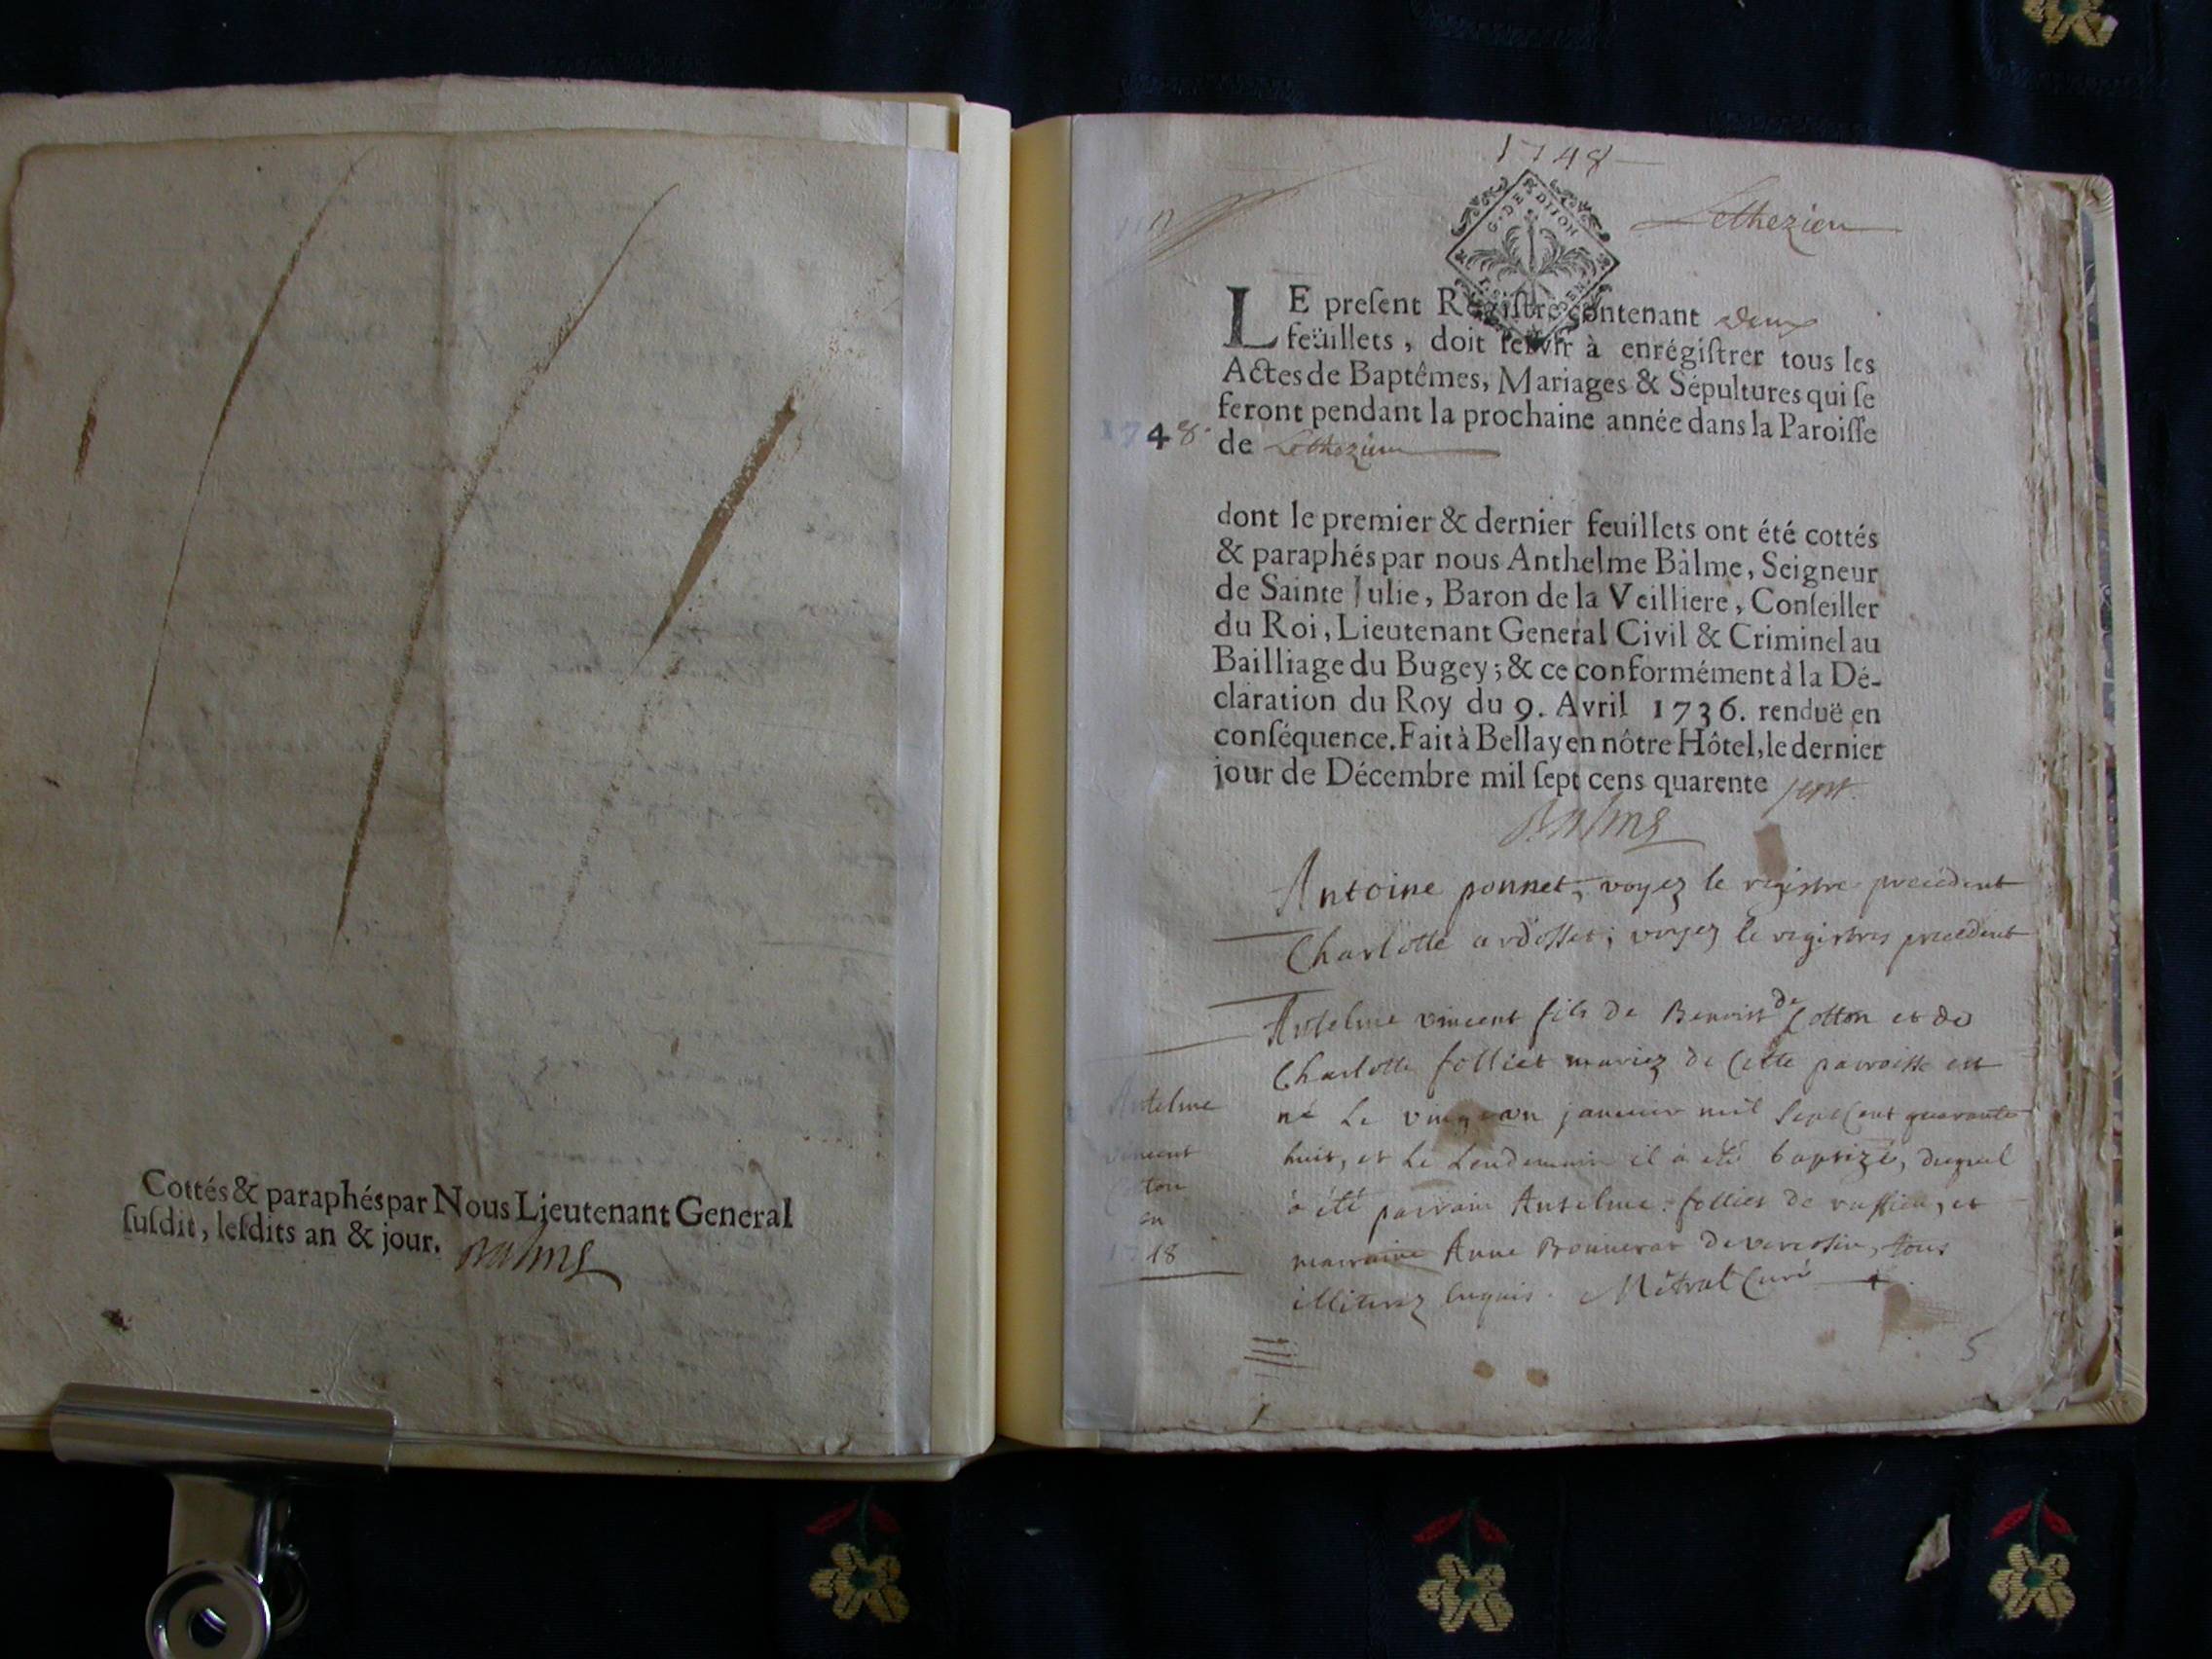 Cottés & paraphés par Nous Lieutenant General
ſuſdit, leſdits an & jour. Balme
1748
G. DE DIJON
Lothezieu
LE preſent Regiſtre contenant deux
feüillets, doit ſervir à enrégiſtrer tous les
Actes de Baptêmes, Mariages & Sépultures qui ſe
feront pendant la prochaine année dans la Paroiſſe
1748.
de Lothezieu
dont le premier & dernier feuillets ont été cottés
& paraphés par nous Anthelme Bàlme, Seigneur
de Sainte Julie, Baron de la Veilliere, Conſeiller
du Roi, Lieutenant General Civil & Criminel au
Bailliage du Bugey; & ce conformément à la Dé-
claration du Roy du 9. Avril 1736. renduë en
conſéquence. Fait à Bellay en nôtre Hôtel, le dernier
jour de Décembre mil ſept cens quarente sept.
Balme
Antoine ponnet, voyez le registre precedent
Charlotte ardosset; voyez le registres precedent
Antelme vincent fils de Benoist Cotton et de
Charlotte folliet mariez de Cette parroisse est
né Le vingt un janvier mil Sept Cent quarante
huit, et Le Lendemain il à été baptizé, duquel
à été parrain Antelme folliet de vassieu, et
marraine Anne Bonnerat de veressin, tous
illiterez Enquis. Mêtral Curé
Antelme
vincent
Cotton
en
1748
5